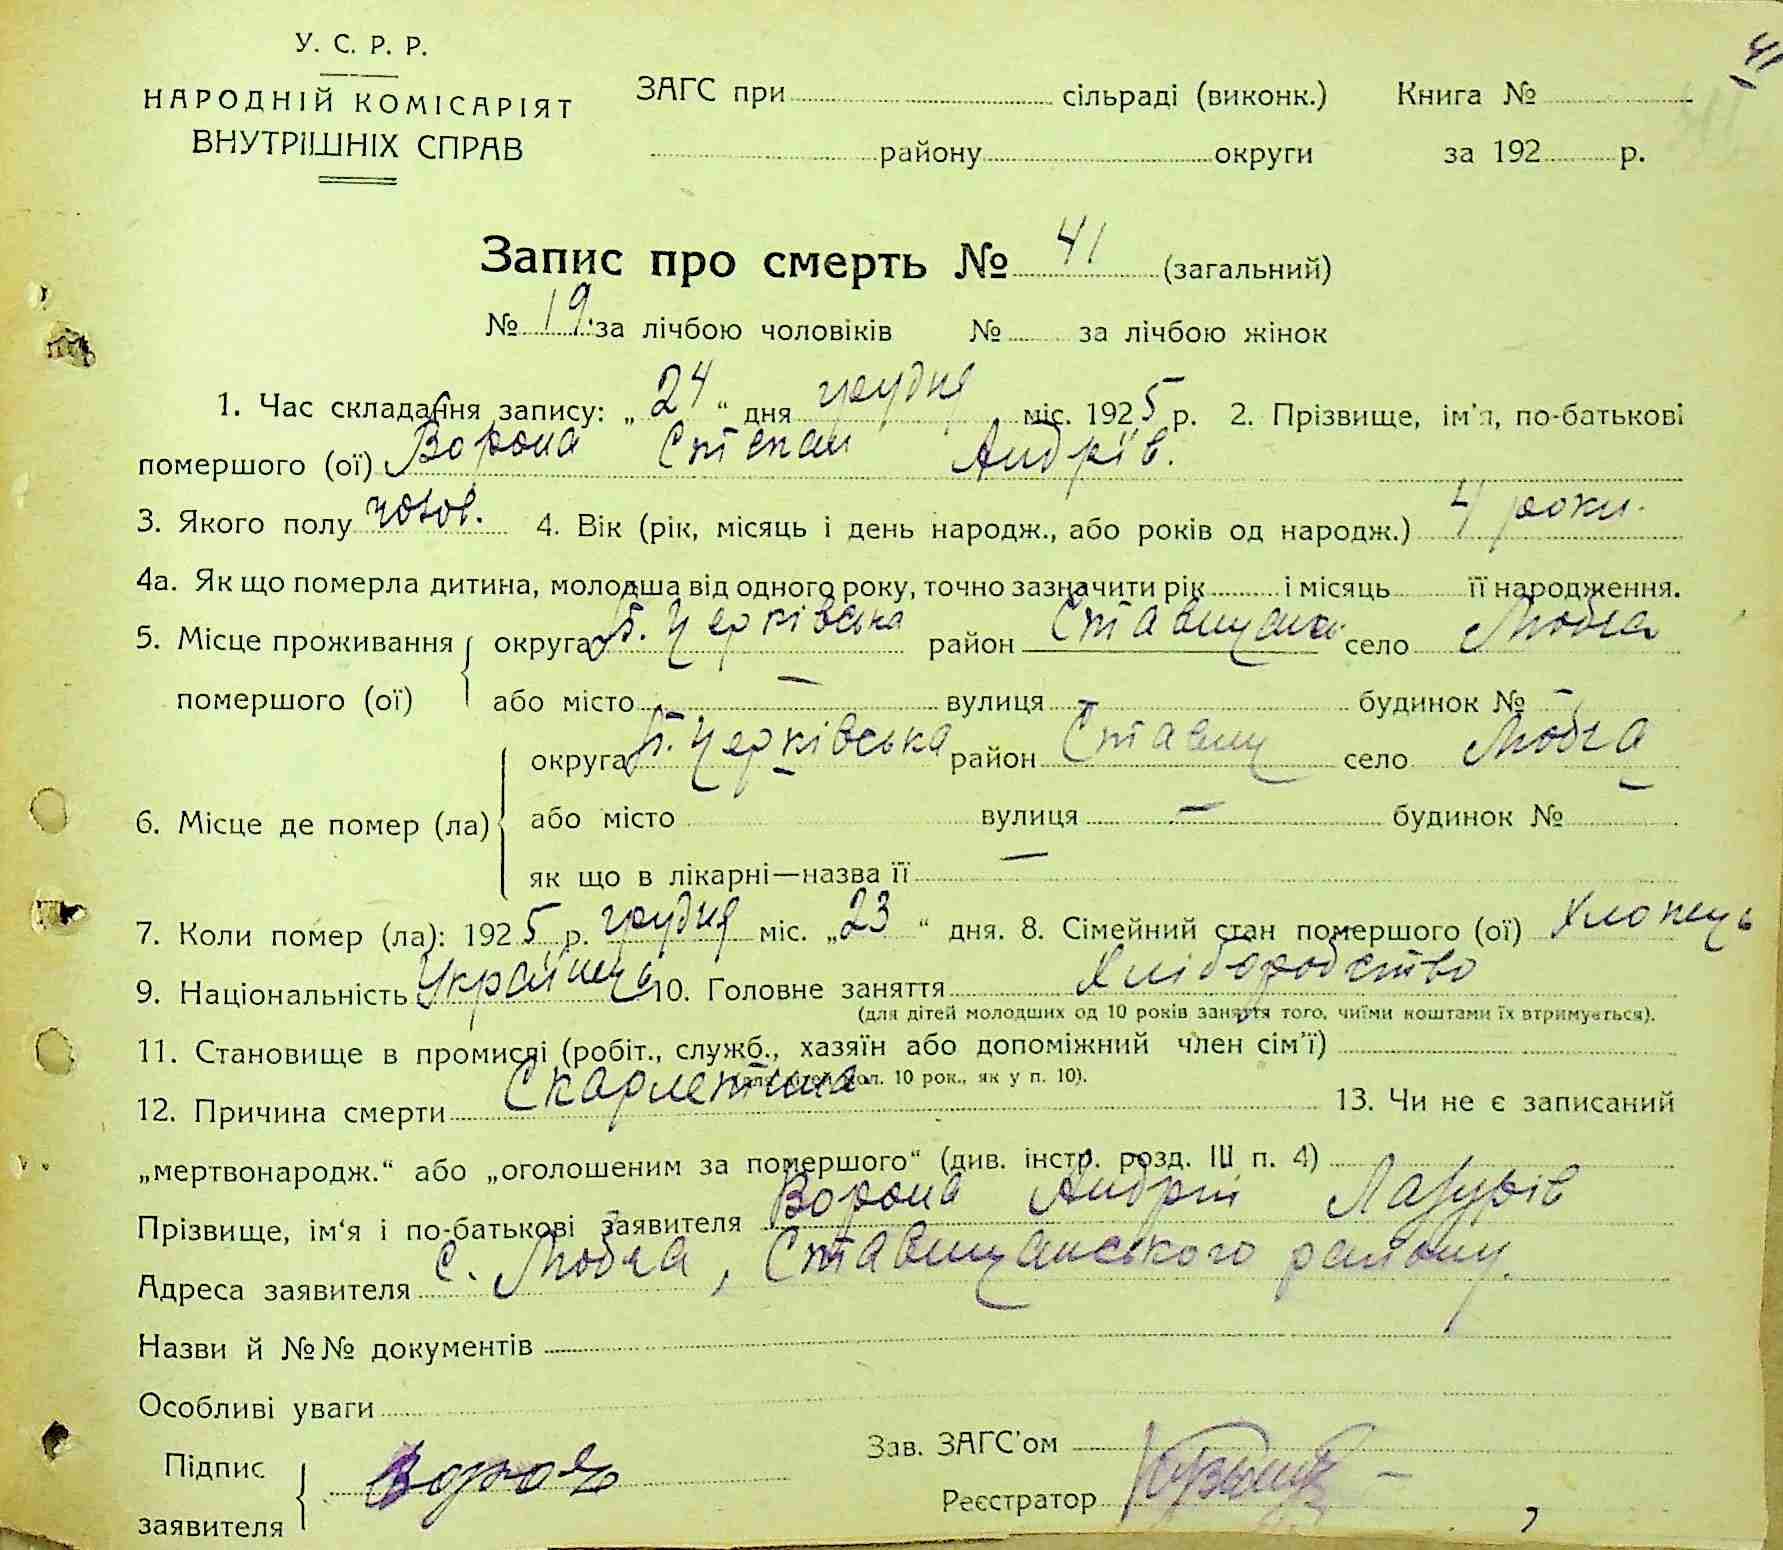 41
У. С. Р. Р.
НАРОДНІЙ КОМІСАРІЯТ
ВНУТРІШНІХ СПРАВ
ЗАГС при сільраді (виконк.) Книга №
району округи за 192 р.
Запис про смерть № 41 (загальний)
№ 19 за лічбою чоловіків № за лічбою жінок
1. Час складання запису: „ 24 “ дня грудня міс. 1925 р. 2. Прізвище, ім'я, по-батькові
помершого (ої) Ворона Степан Андрів.
3. Якого полу чолов. 4. Вік (рік, місяць і день народж., або років од народж.) 4 роки.
4а. Як що померла дитина, молодша від одного року, точно зазначити рік і місяць її народження.
5. Місце проживання округа Б. Церківська район Ставищан. село Любча
помершого (ої) або місто — вулиця — будинок № —
округа Б. Церківська район Ставищ село Любча
6. Місце де помер (ла) або місто вулиця — будинок №
як що в лікарні—назва її —
7. Коли помер (ла): 1925 р. грудня міс. „23 “ дня. 8. Сімейний стан помершого (ої) хлопець
9. Національність Українець 10. Головне заняття Хліборобство
(для дітей молодших од 10 років заняття того, чиїми коштами їх втримується).
11. Становище в промислі (робіт., служб., хазяїн або допоміжний член сім'ї)
(для дітей мол. 10 рок., як у п. 10).
12. Причина смерти Скарлетина 13. Чи не є записаний
„мертвонародж.“ або „оголошеним за помершого“ (див. інстр. розд. III п. 4)
Прізвище, ім'я і по-батькові заявителя Ворона Андрій Лазурів
Адреса заявителя с. Любча, Ставищанського району.
Назви й №№ документів
Особливі уваги
Підпис
заявителя Ворона
Зав. ЗАГС'ом
Реєстратор